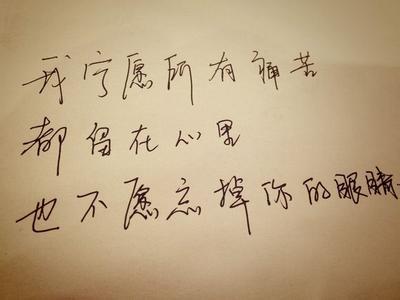 我宁愿所有痛苦
都留在心里
也不愿忘掉你的眼睛